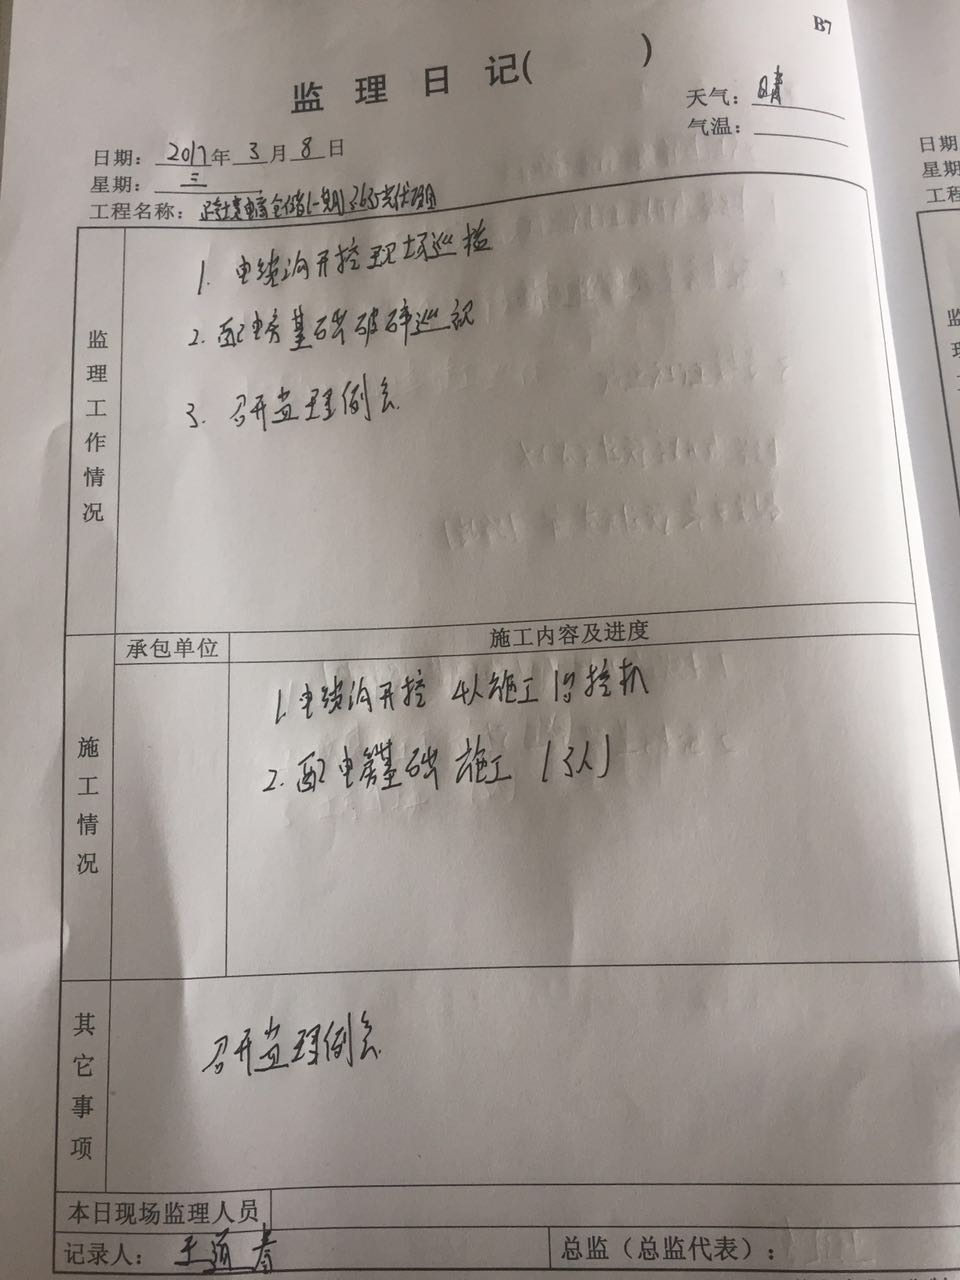 B7
监理日记( )
天气：晴
气温：
日期：2017年3月8日
星期：三
工程名称：
监理工作情况
1. 电缆沟开挖现场巡检
2. 配电房基础破碎巡视
3. 召开监理例会
承包单位 施工内容及进度
施工情况
1. 电缆沟开挖 4人施工 1台挖机
2. 配电房基础施工 (3人)
其它事项
召开监理例会
本日现场监理人员
记录人：王
总监（总监代表）：
日期
星期
工程